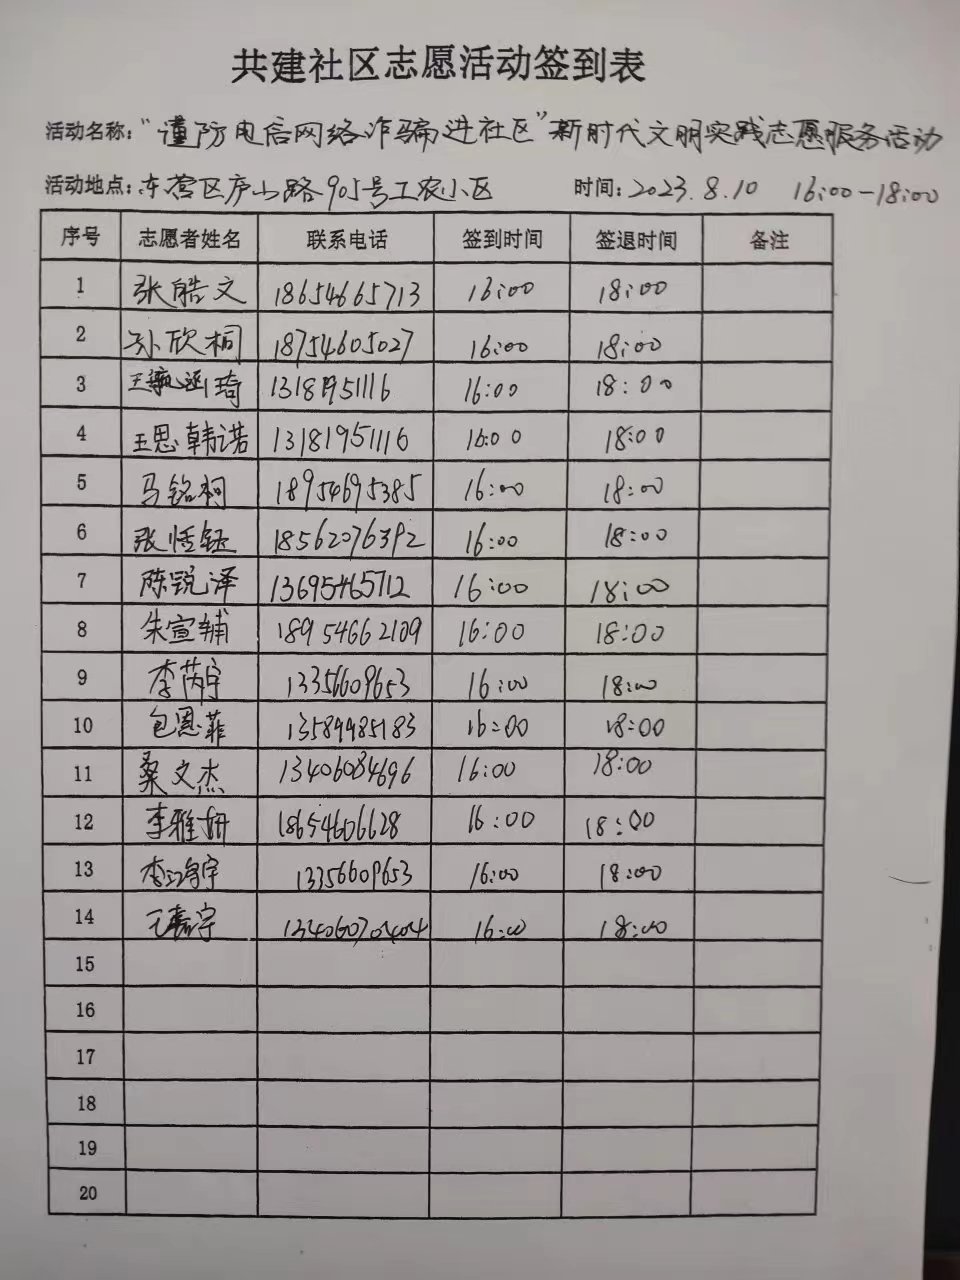 共建社区志愿活动签到表
活动名称：“谨防电信网络诈骗进社区”新时代文明实践志愿服务活动
活动地点：东营区庐山路905号工农小区 时间：2023.8.10 16:00-18:00
序号 志愿者姓名 联系电话 签到时间 签退时间 备注
1 张皓文 18654665713 16:00 18:00
2 孙欣桐 18754605027 16:00 18:00
3 13181951116 16:00 18:00
4 王思韩诺 13181951116 16:00 18:00
5 马铭柯 18954695385 16:00 18:00
6 张恬钰 18562076392 16:00 18:00
7 陈锐泽 13695465712 16:00 18:00
8 朱宣辅 18954662109 16:00 18:00
9 李芮宇 13356609653 16:00 18:00
10 包恩菲 13589985183 16:00 18:00
11 桑文杰 13406084696 16:00 18:00
12 李雅妍 18654606628 16:00 18:00
13 13356609653 16:00 18:00
14 王嘉宇 16:00 18:00
15
16
17
18
19
20